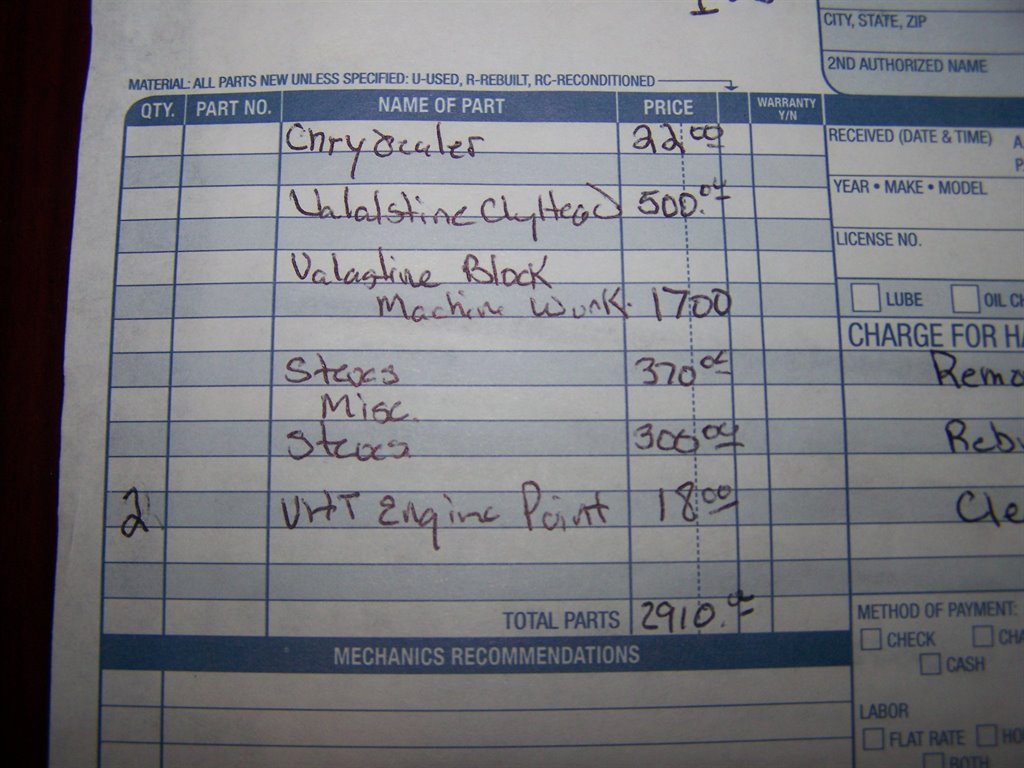 CITY, STATE, ZIP
2ND AUTHORIZED NAME
MATERIAL: ALL PARTS NEW UNLESS SPECIFIED: U-USED, R-REBUILT, RC-RECONDITIONED
QTY. PART NO. NAME OF PART PRICE WARRANTY Y/N
RECEIVED (DATE & TIME) A
P
22 00
YEAR • MAKE • MODEL
500.
LICENSE NO.
Valastine Block
Machine Work. 1700
LUBE OIL CH
CHARGE FOR HA
370 Remo
Misc.
300 Rebu
2 VHT Engine Paint 18 00 Cle
TOTAL PARTS 2910.
METHOD OF PAYMENT:
CHECK CHA
CASH
MECHANICS RECOMMENDATIONS
LABOR
FLAT RATE HO
BOTH